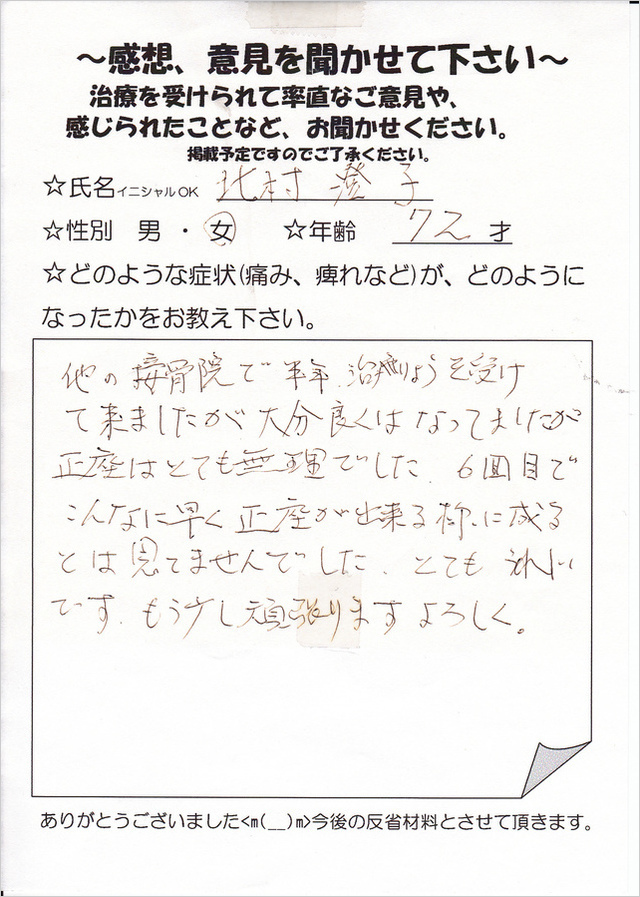 ～感想、意見を聞かせて下さい～
治療を受けられて率直なご意見や、
感じられたことなど、お聞かせください。
掲載予定ですのでご了承ください。
☆氏名イニシャルOK 北村 澄子
☆性別 男 ・ 女 ☆年齢 72 才
☆どのような症状(痛み、痺れなど)が、どのように
なったかをお教え下さい。
他の接骨院で半年、治りょうを受け
て来ましたが大分良くはなってましたが
正座はとても無理でした、6回目で
こんなに早く正座が出来る様に成る
とは思てませんでした、とても うれしい
です、もう少し頑張ります よろしく。
ありがとうございました<m(__)m>今後の反省材料とさせて頂きます。